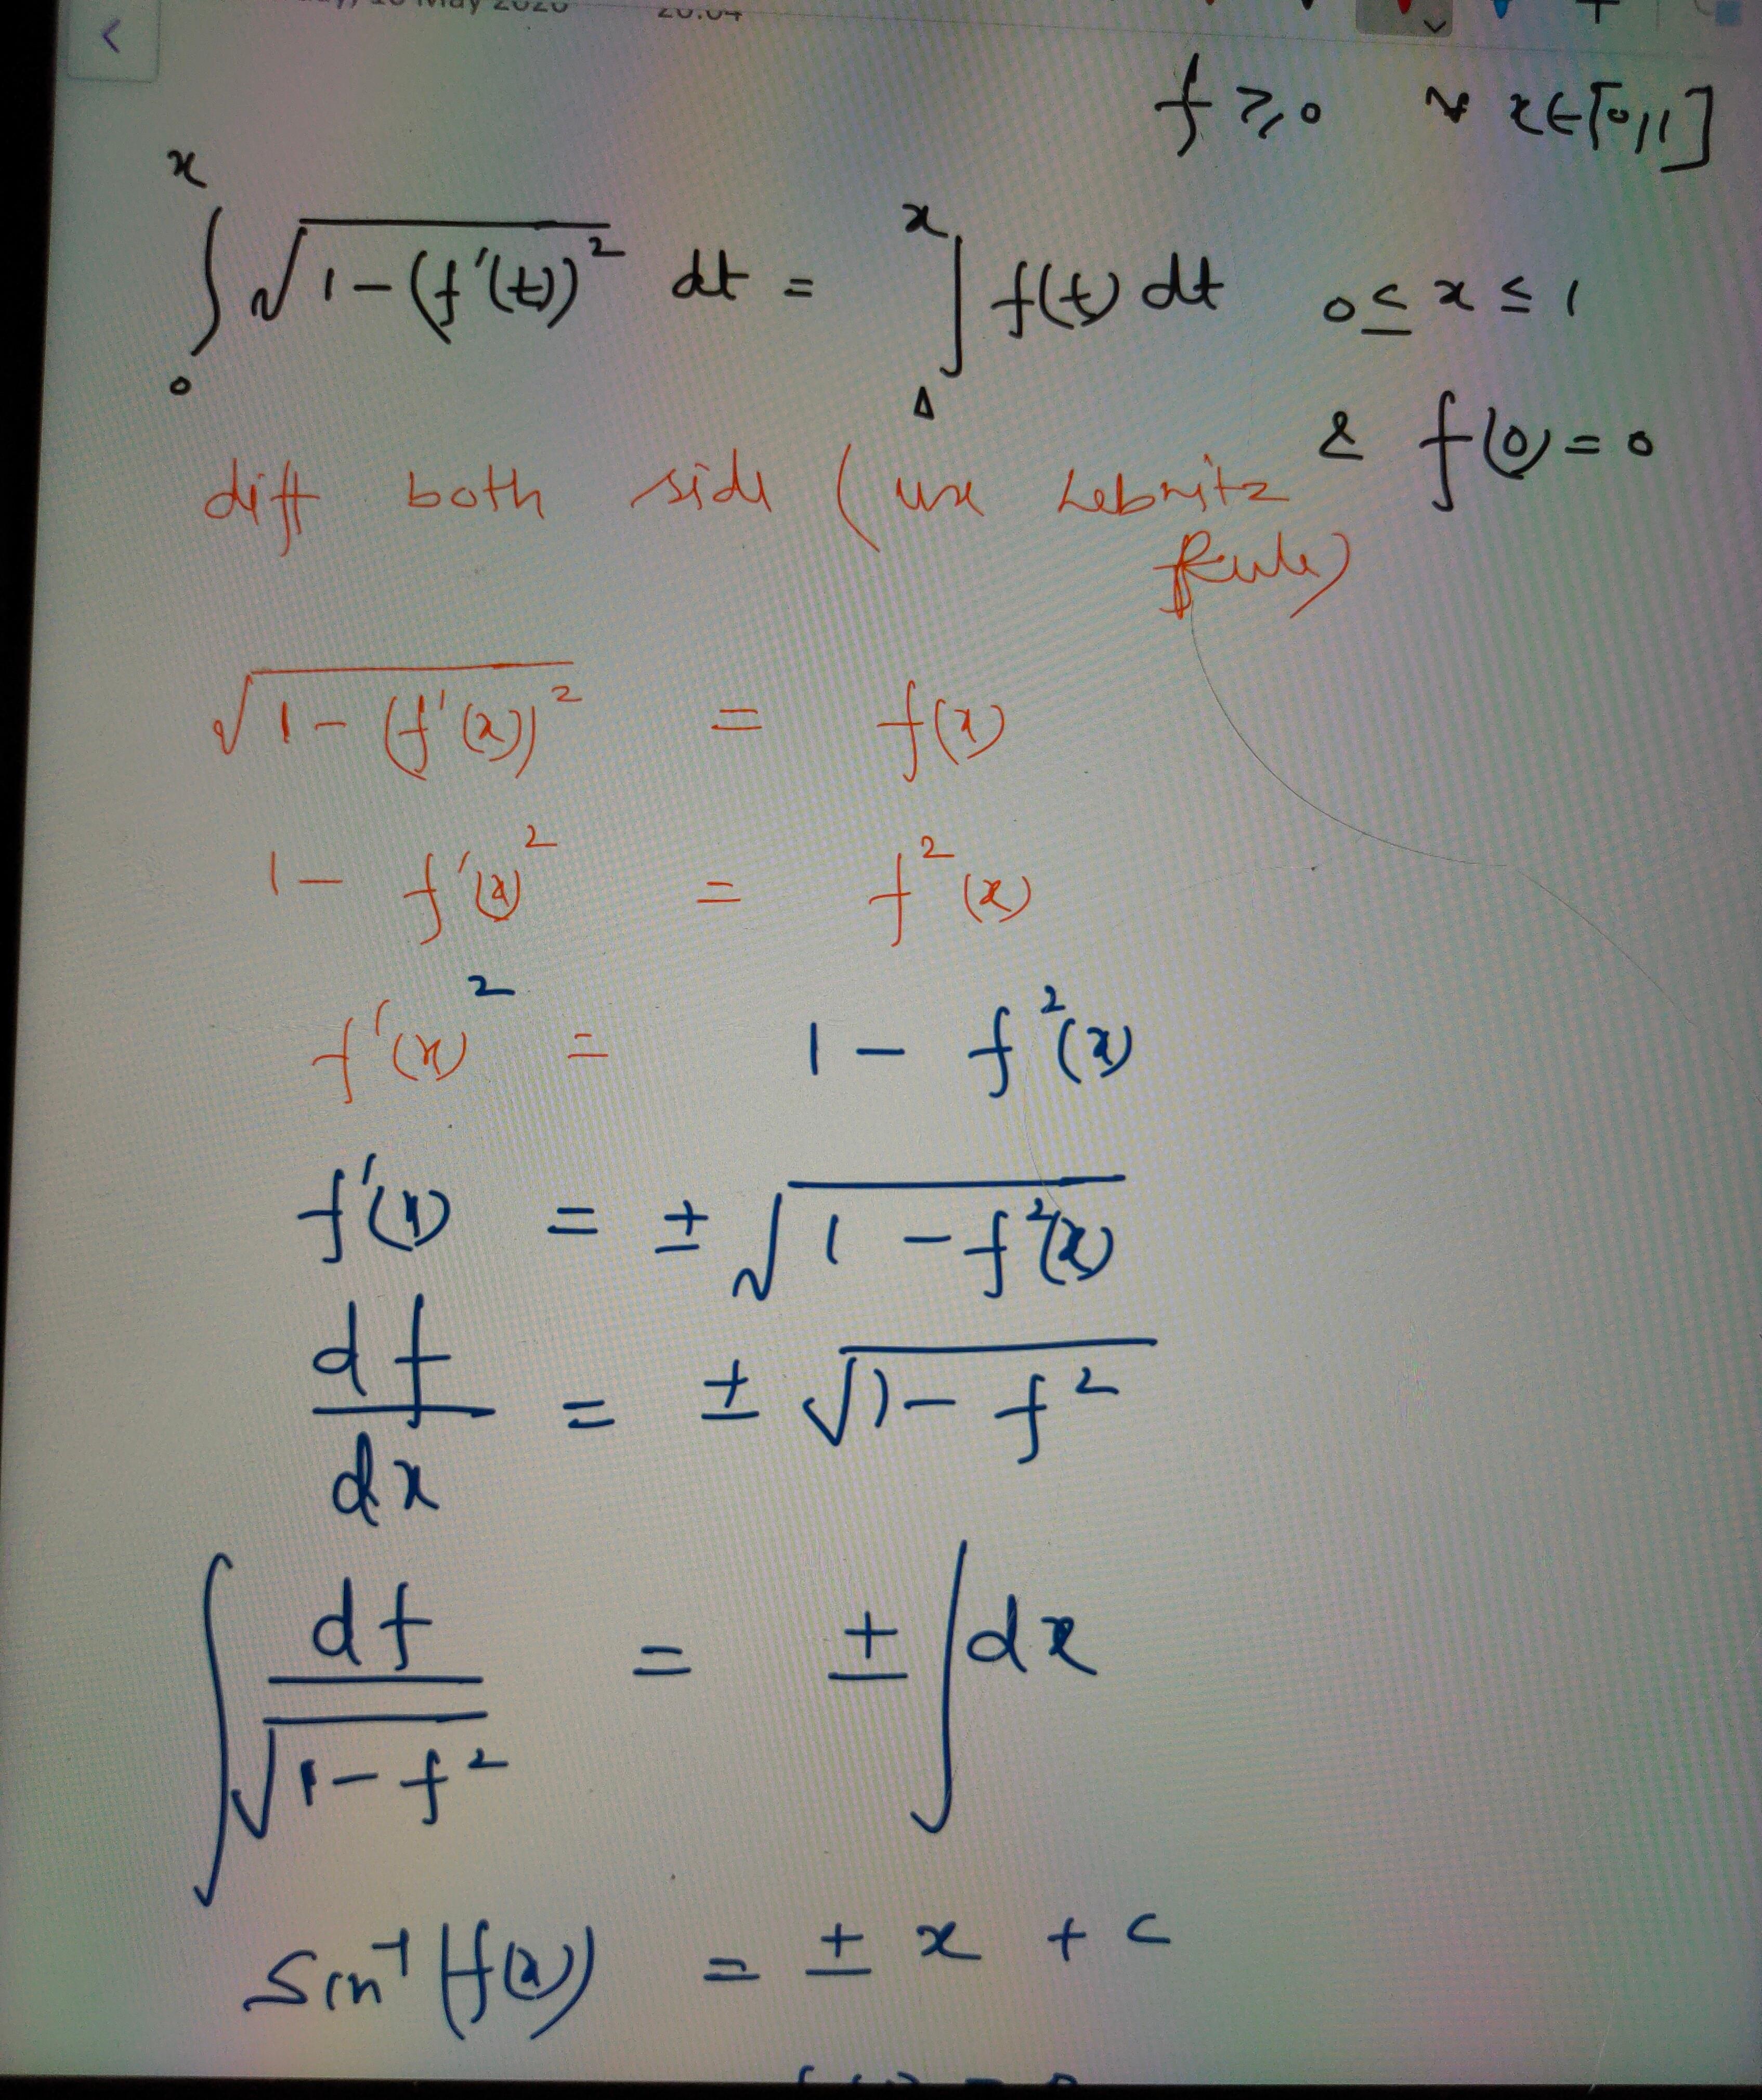 f ⩾ 0 ∀ x∈[0,1]
∫₀ˣ √(1-(f'(t))²) dt = ∫₀ˣ f(t) dt 0 ≤ x ≤ 1
& f(0) = 0
diff both side (use Lebnitz
Rule)
√(1-(f'(x))²) = f(x)
1 - f'(x)² = f²(x)
f'(x)² = 1 - f²(x)
f'(x) = ± √(1 - f²(x))
df/dx = ± √(1 - f²)
∫ df/√(1 - f²) = ± ∫ dx
Sin⁻¹(f(x)) = ± x + c